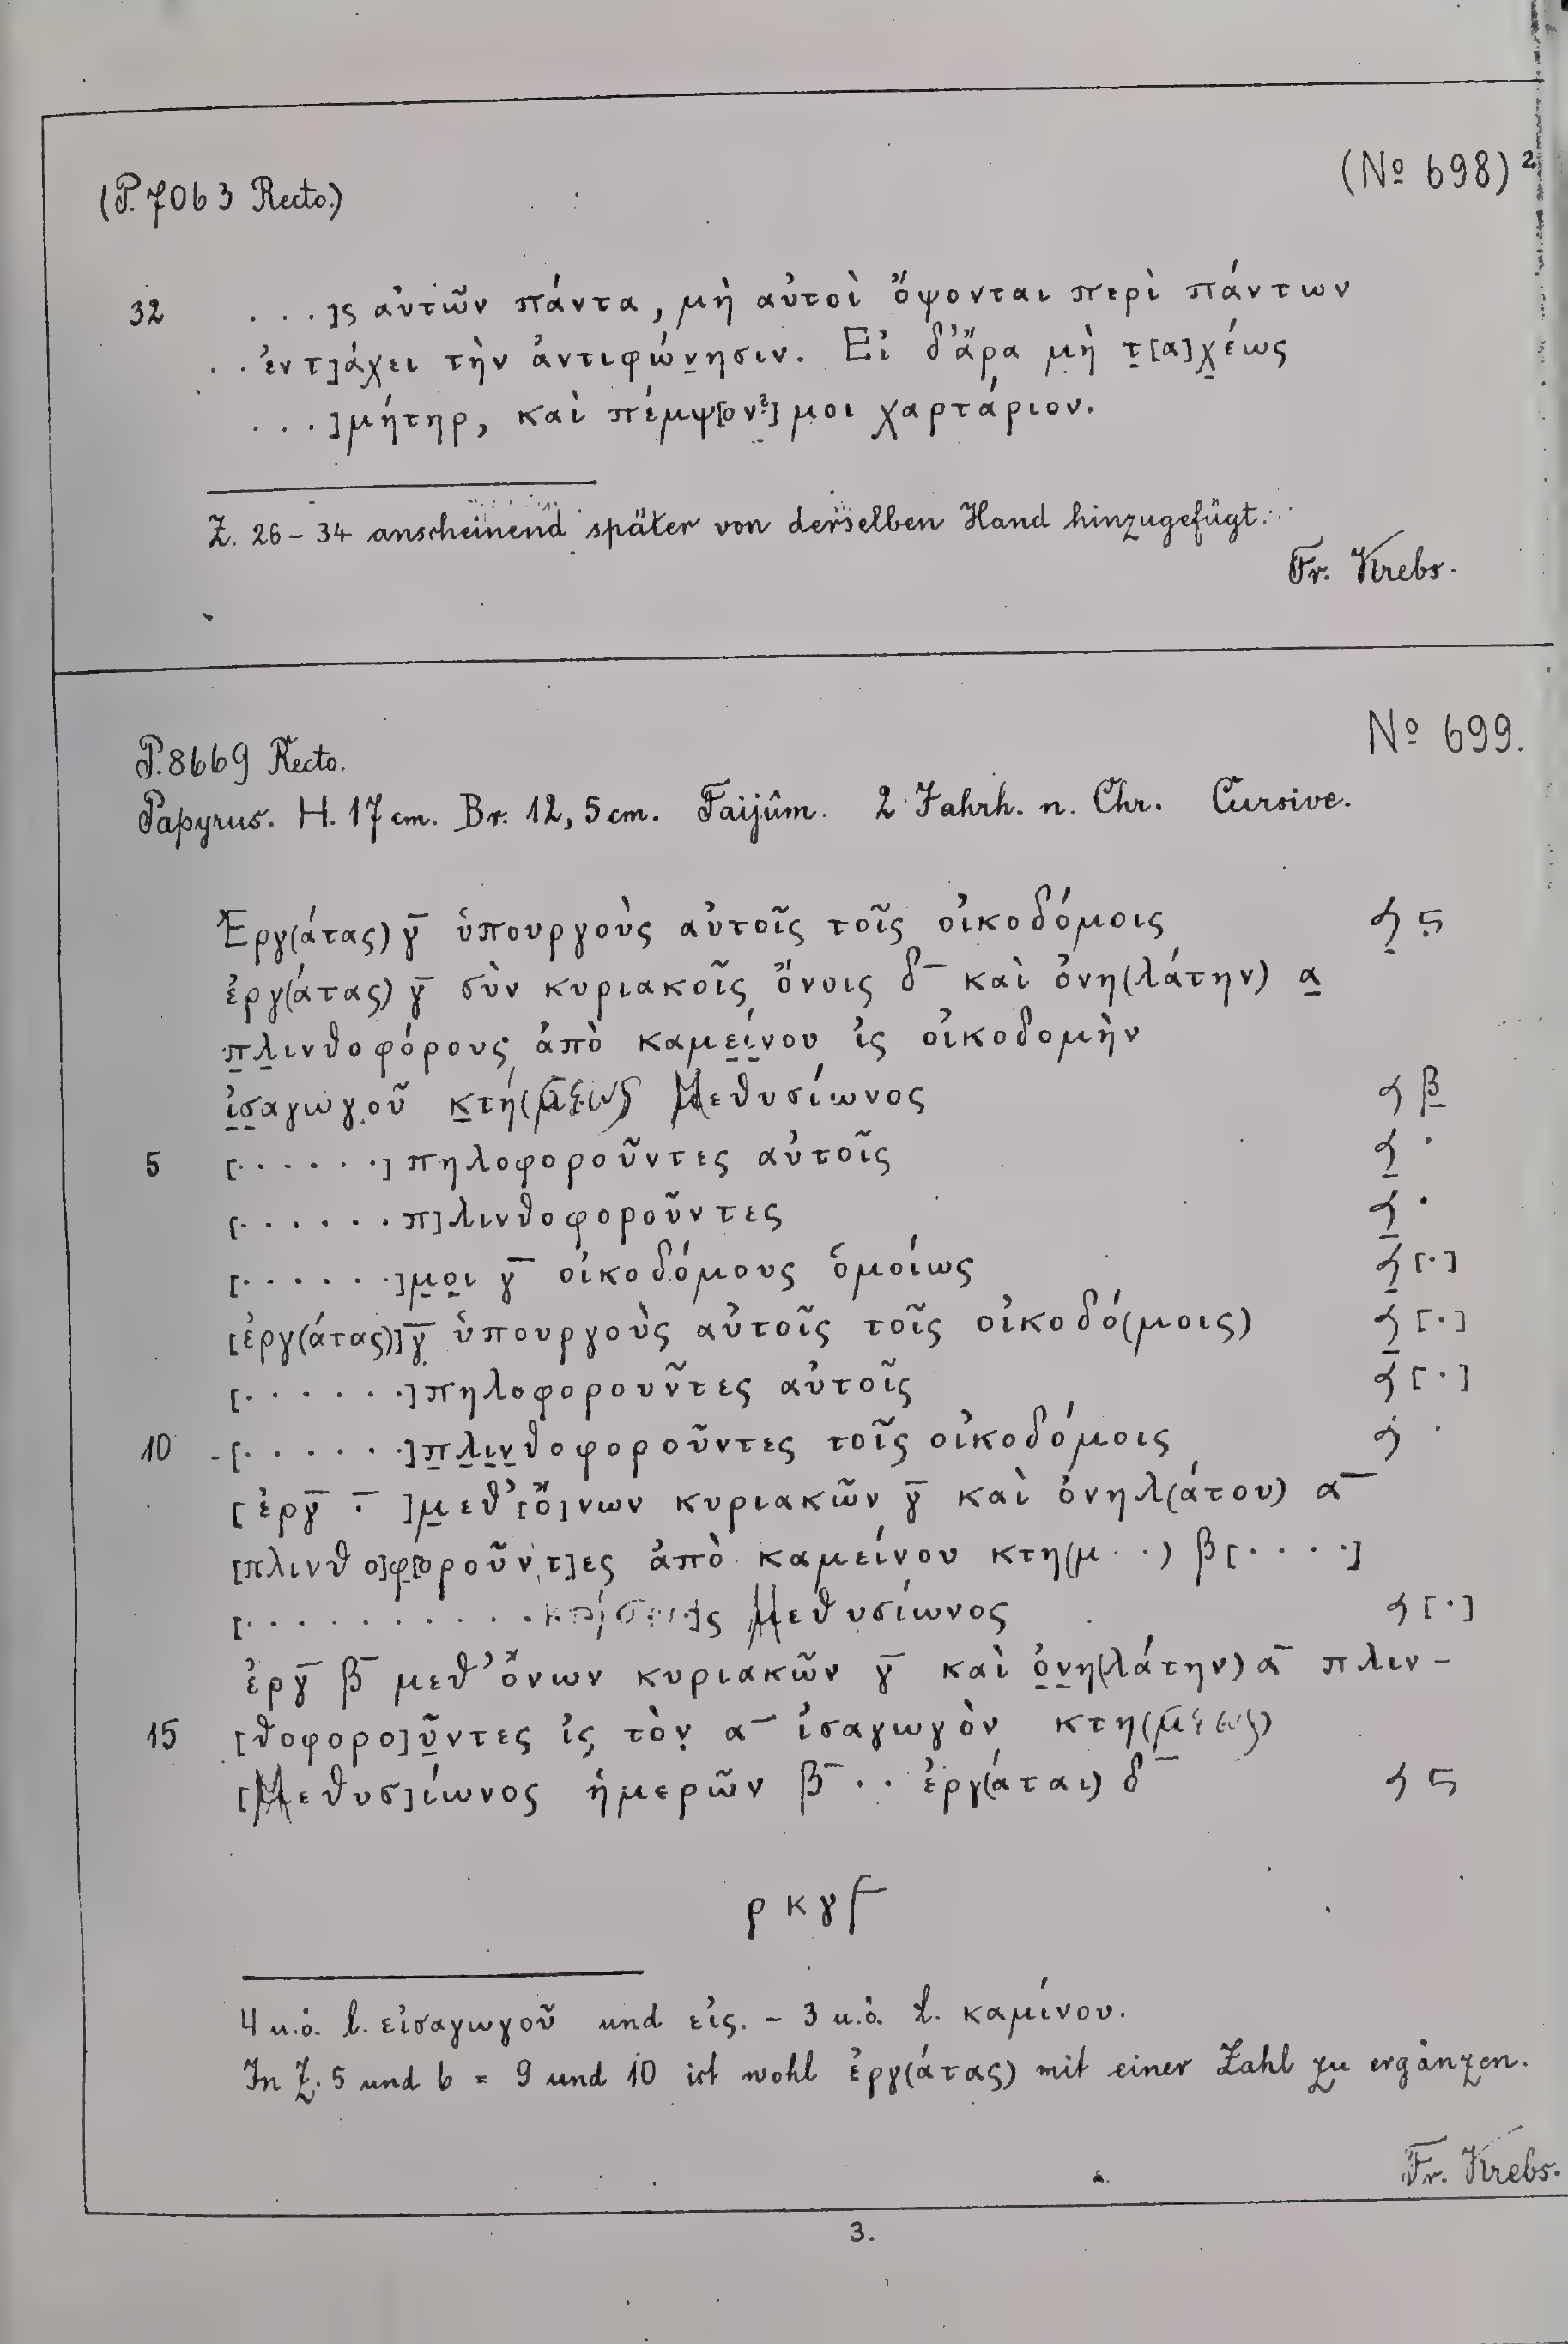 (P. 7063 Recto.)
(Nº 698)²
32 . . . ]ς αὐτῶν πάντα, μὴ αὐτοὶ ὄψονται περὶ πάντων
. . ἐν τ]άχει τὴν ἀντιφώνησιν. Εἰ δ᾽ἄρα μὴ τ̣[α]χ̣έως
. . . ]μήτηρ, καὶ πέμψ[ον?] μοι χαρτάριον.
Z. 26 – 34 anscheinend später von derselben Hand hinzugefügt.
Fr. Krebs.
Nº 699.
P. 8669 Recto.
Papyrus. H. 17 cm. Br. 12,5 cm. Faijûm. 2 Jahrh. n. Chr. Cursive.
Ἐργ(άτας) γ̅ ὑπουργοὺς αὐτοῖς τοῖς οἰκοδόμοις ϛ
ἐργ(άτας) γ̅ σὺν κυριακοῖς ὄνοις δ̅ καὶ ὀνη(λάτην) α̣
π̣λ̣ινθοφόρους ἀπὸ καμε̣ί̣νου ἰς οἰκοδομὴν
ἰ̣σ̣αγωγοῦ κ̣τή( Μεθυσίωνος β̣
5 [· · · · · ·] πηλοφοροῦντες αὐτοῖς ·
[· · · · · · π]λινθοφοροῦντες ·
[· · · · · ·]μ̣ο̣ι γ̅ οἰκοδόμους ὁμοίως [·]
[ἐργ(άτας)] γ̅ ὑπουργοὺς αὐτοῖς τοῖς οἰκοδό(μοις) [·]
[· · · · · ·]πηλοφοροῦντες αὐτοῖς [·]
10 [· · · · · ·]π̣λ̣ι̣ν̣θοφοροῦντες τοῖς οἰκοδόμοις ·
[ἐργ̅ · ]μ̣εθ᾽[ὄ]νων κυριακῶν γ̅ καὶ ὀνηλ(άτου) α̅
[πλινθο]φ̣[οροῦντ]ες ἀπὸ καμείνου κτη(μ · ·) β[· · · ·]
[· · · · · · · · · · ]ς Μεθυσίωνος [·]
ἐργ̅ β̅ μεθ᾽ὄνων κυριακῶν γ̅ καὶ ὀ̣ν̣η(λάτην) α̅ πλιν-
15 [θοφορο]ῦ̣ντες ἰς τὸν̣ α̅ ἰσαγωγὸν κτη(
[Μεθυσ]ίωνος ἡμερῶν β̅ · · ἐργ(άται) δ̅ ϛ
ρκγ
4 u.ö. l. εἰσαγωγοῦ und εἰς. – 3 u.ö. l. καμίνου.
In Z. 5 und 6 = 9 und 10 ist wohl ἐργ(άτας) mit einer Zahl zu ergänzen.
Fr. Krebs.
3.